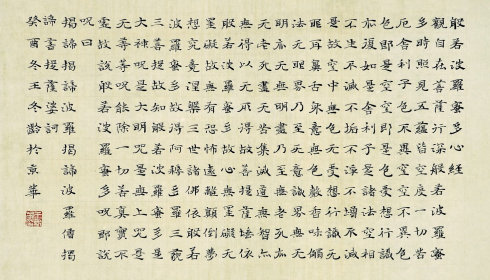 般若波羅蜜多心經
觀自在菩薩行深般若波羅蜜
多時照見五蘊皆空度一切苦
厄舍利子色不異空空不異色
色即是空空即是色受想行識
亦復如是舍利子是諸法空相
不生不滅不垢不淨不增不減
是故空中無色無受想行識無
眼耳鼻舌身意無色聲香味觸
法無眼界乃至無意識界無無
明亦無無明盡乃至無老死亦
無老死盡無苦集滅道無智亦
無得以無所得故菩提薩埵依
般若波羅蜜多故心無罣礙無
罣礙故無有恐怖遠離顛倒夢
想究竟涅槃三世諸佛依般若
波羅蜜多故得阿耨多羅三藐
三菩提故知般若波羅蜜多是
大神咒是大明咒是無上咒是
無等等咒能除一切苦真實不
虛故說般若波羅蜜多咒即說
咒曰
揭諦揭諦波羅揭諦波羅僧揭
諦菩提薩婆訶
癸酉冬王冬齡於京華